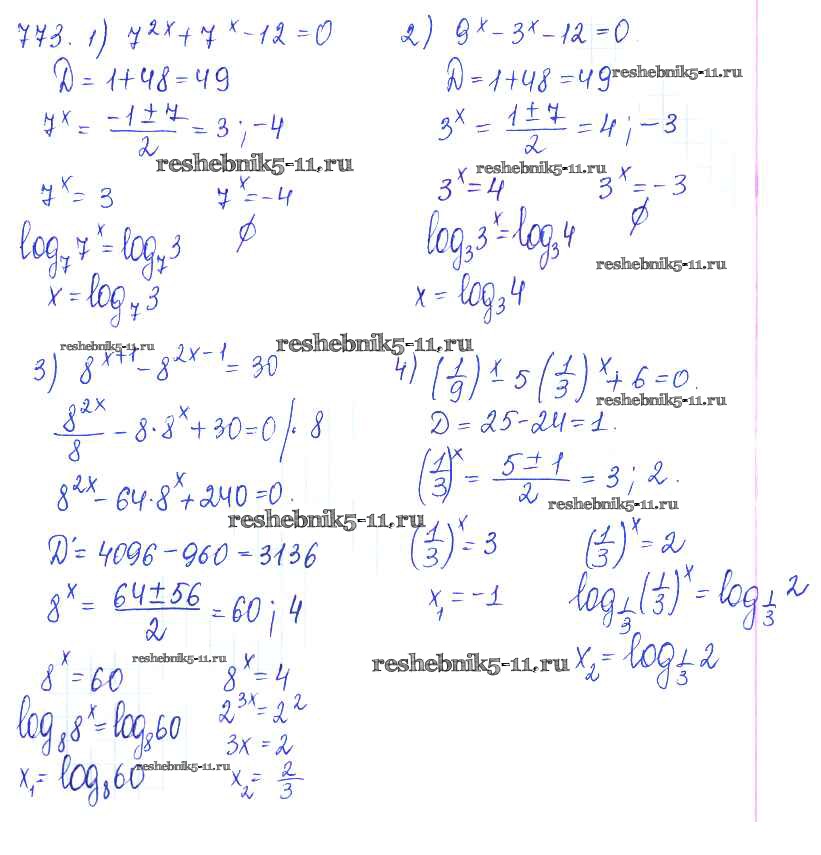 773. 1) 7^{2x} + 7^x - 12 = 0
D = 1 + 48 = 49
7^x = \frac{-1 ± 7}{2} = 3 ; -4
reshebnik5-11.ru
7^x = 3 7^x = -4
log_7 7^x = log_7 3 ∅
x = log_7 3
2) 9^x - 3^x - 12 = 0.
D = 1 + 48 = 49 reshebnik5-11.ru
3^x = \frac{1 ± 7}{2} = 4 ; -3
reshebnik5-11.ru
3^x = 4 3^x = -3
log_3 3^x = log_3 4 ∅
reshebnik5-11.ru
x = log_3 4
reshebnik5-11.ru
reshebnik5-11.ru
3) 8^{x+1} - 8^{2x-1} = 30
\frac{8^{2x}}{8} - 8 · 8^x + 30 = 0 | · 8
8^{2x} - 64 · 8^x + 240 = 0.
reshebnik5-11.ru
D' = 4096 - 960 = 3136
8^x = \frac{64 ± 56}{2} = 60 ; 4
reshebnik5-11.ru
8^x = 60 8^x = 4
log_8 8^x = log_8 60 2^{3x} = 2^2
3x = 2
reshebnik5-11.ru
x_1 = log_8 60 x_2 = \frac{2}{3}
4) (\frac{1}{9})^x - 5 (\frac{1}{3})^x + 6 = 0.
reshebnik5-11.ru
D = 25 - 24 = 1.
(\frac{1}{3})^x = \frac{5 ± 1}{2} = 3 ; 2.
reshebnik5-11.ru
(\frac{1}{3})^x = 3 (\frac{1}{3})^x = 2
x_1 = -1 log_{\frac{1}{3}} (\frac{1}{3})^x = log_{\frac{1}{3}} 2
reshebnik5-11.ru x_2 = log_{\frac{1}{3}} 2